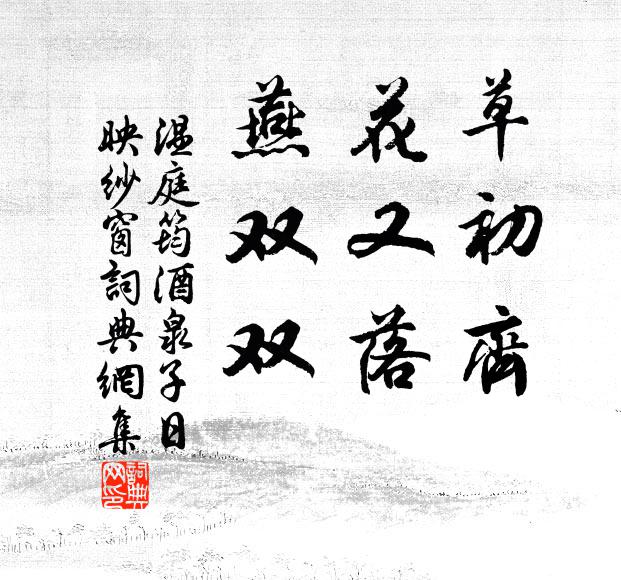 草初齊
花又落
燕双双
温庭筠酒泉子日
映纱窗詞典網集
詞典网印